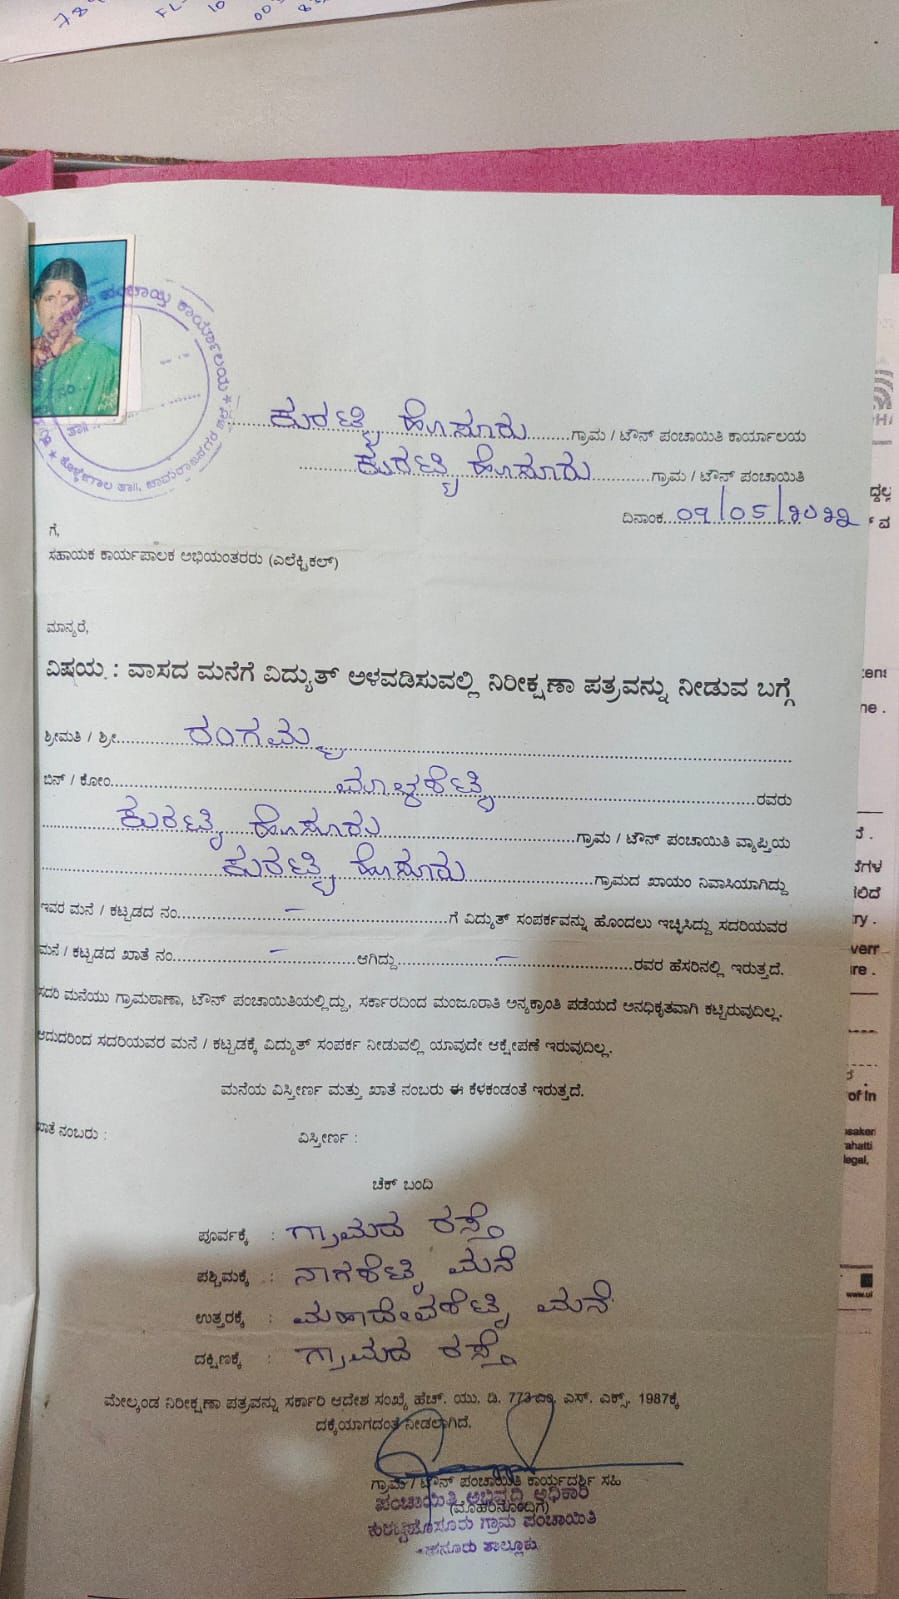 ಕುರಟ್ಟಿ ಹೊಸೂರು ಗ್ರಾಮ / ಟೌನ್ ಪಂಚಾಯಿತಿ ಕಾರ್ಯಾಲಯ
ಕುರಟ್ಟಿ ಹೊಸೂರು ಗ್ರಾಮ / ಟೌನ್ ಪಂಚಾಯಿತಿ
ದಿನಾಂಕ 09/05/೨೦೨೨
ಗೆ,
ಸಹಾಯಕ ಕಾರ್ಯಪಾಲಕ ಅಭಿಯಂತರರು (ಎಲೆಕ್ಟ್ರಿಕಲ್)
ಮಾನ್ಯರೆ,
ವಿಷಯ : ವಾಸದ ಮನೆಗೆ ವಿದ್ಯುತ್ ಅಳವಡಿಸುವಲ್ಲಿ ನಿರೀಕ್ಷಣಾ ಪತ್ರವನ್ನು ನೀಡುವ ಬಗ್ಗೆ
ಶ್ರೀಮತಿ / ಶ್ರೀ ರಂಗಮ್ಮ
ಬಿನ್ / ಕೋಂ ರವರು
ಕುರಟ್ಟಿ ಹೊಸೂರು ಗ್ರಾಮ / ಟೌನ್ ಪಂಚಾಯಿತಿ ವ್ಯಾಪ್ತಿಯ
ಕುರಟ್ಟಿ ಹೊಸೂರು ಗ್ರಾಮದ ಖಾಯಂ ನಿವಾಸಿಯಾಗಿದ್ದು
ಇವರ ಮನೆ / ಕಟ್ಟಡದ ನಂ. – ಗೆ ವಿದ್ಯುತ್ ಸಂಪರ್ಕವನ್ನು ಹೊಂದಲು ಇಚ್ಛಿಸಿದ್ದು ಸದರಿಯವರ
ಮನೆ / ಕಟ್ಟಡದ ಖಾತೆ ನಂ. – ಆಗಿದ್ದು – ರವರ ಹೆಸರಿನಲ್ಲಿ ಇರುತ್ತದೆ.
ಸದರಿ ಮನೆಯು ಗ್ರಾಮಠಾಣಾ, ಟೌನ್ ಪಂಚಾಯಿತಿಯಲ್ಲಿದ್ದು, ಸರ್ಕಾರದಿಂದ ಮಂಜೂರಾತಿ ಅನ್ಯಕ್ರಾಂತಿ ಪಡೆಯದೆ ಅನಧಿಕೃತವಾಗಿ ಕಟ್ಟಿರುವುದಿಲ್ಲ.
ಆದುದರಿಂದ ಸದರಿಯವರ ಮನೆ / ಕಟ್ಟಡಕ್ಕೆ ವಿದ್ಯುತ್ ಸಂಪರ್ಕ ನೀಡುವಲ್ಲಿ ಯಾವುದೇ ಆಕ್ಷೇಪಣೆ ಇರುವುದಿಲ್ಲ.
ಮನೆಯ ವಿಸ್ತೀರ್ಣ ಮತ್ತು ಖಾತೆ ನಂಬರು ಈ ಕೆಳಕಂಡಂತೆ ಇರುತ್ತದೆ.
ಖಾತೆ ನಂಬರು : ವಿಸ್ತೀರ್ಣ :
ಚೆಕ್ ಬಂದಿ
ಪೂರ್ವಕ್ಕೆ : ಗ್ರಾಮದ ರಸ್ತೆ
ಪಶ್ಚಿಮಕ್ಕೆ : ನಾಗಶೆಟ್ಟಿ ಮನೆ
ಉತ್ತರಕ್ಕೆ : ಮಹಾದೇವಶೆಟ್ಟಿ ಮನೆ
ದಕ್ಷಿಣಕ್ಕೆ : ಗ್ರಾಮದ ರಸ್ತೆ
ಮೇಲ್ಕಂಡ ನಿರೀಕ್ಷಣಾ ಪತ್ರವನ್ನು ಸರ್ಕಾರಿ ಆದೇಶ ಸಂಖ್ಯೆ ಹೆಚ್. ಯು. ಡಿ. 773 ಎಸ್. ಎಕ್ಸ್. 1987ಕ್ಕೆ
ದಕ್ಕೆಯಾಗದಂತೆ ನೀಡಲಾಗಿದೆ.
ಗ್ರಾಮ / ಟೌನ್ ಪಂಚಾಯಿತಿ ಕಾರ್ಯದರ್ಶಿ ಸಹಿ
(ಮೊಹರಿನೊಂದಿಗೆ)
ಪಂಚಾಯಿತಿ ಅಭಿವೃದ್ಧಿ ಅಧಿಕಾರಿ
ಕುರಟ್ಟಿಹೊಸೂರು ಗ್ರಾಮ ಪಂಚಾಯಿತಿ
ಹನೂರು ತಾಲ್ಲೂಕು